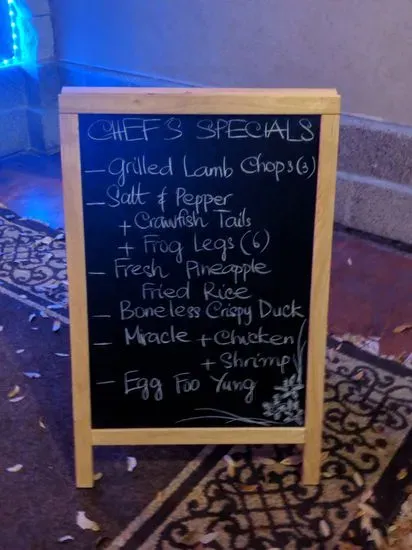 CHEF'S SPECIALS
- Grilled Lamb Chops (3)
- Salt & Pepper
+ Crawfish Tails
+ Frog Legs (6)
- Fresh Pineapple
Fried Rice
- Boneless Crispy Duck
- Miracle + Chicken
+ Shrimp
- Egg Foo Yung